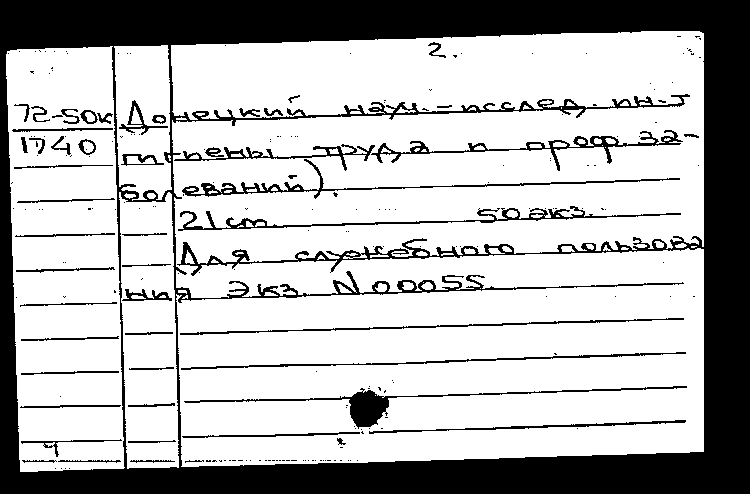 2.
72-50к Донецкий науч.-исслед. ин-т
1740 гигиены труда и проф. за-
болеваний).
21 см. 50 экз.
Для служебного пользова
ния Экз. N 00055.
4